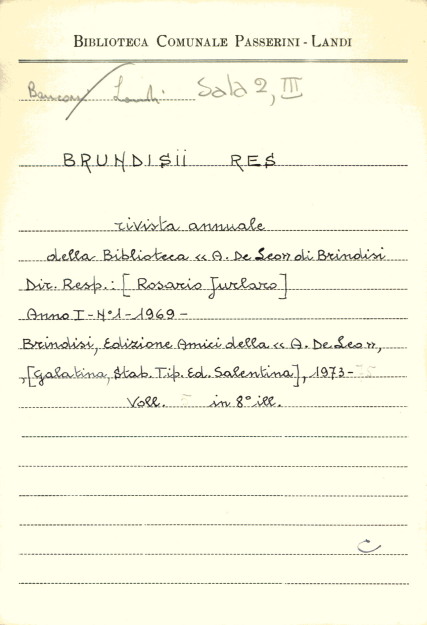 BIBLIOTECA COMUNALE PASSERINI - LANDI
Banconi Landi Sala 2, III
BRUNDISII RES
rivista annuale
della Biblioteca « A. De Leo» di Brindisi
Dir. Resp.: [Rosario Jurlaro]
Anno I - N°1 - 1969 -
Brindisi, Edizione Amici della « A. De Leo »,
[Galatina, Stab. Tip. Ed. Salentina], 1973-
Voll. 5 in 8° ill.
C